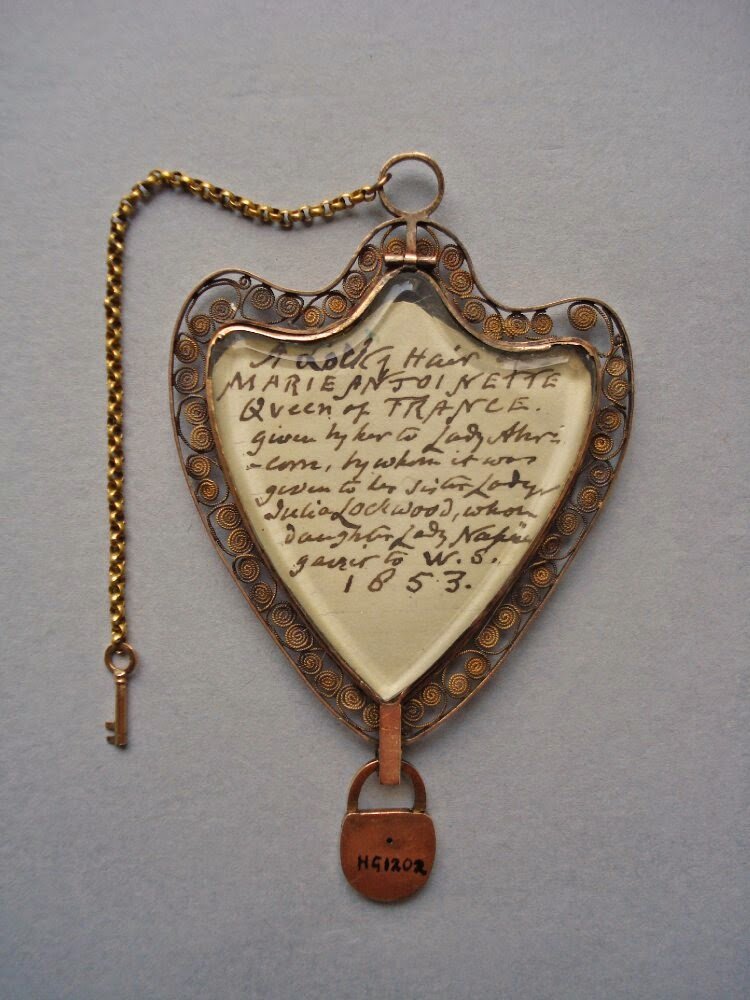 A Lock of Hair of
MARIE ANTOINETTE
Queen of FRANCE.
given by her to Lady Aber-
-corn, by whom it was
given to her sister Lady
Julia Lockwood, whose
daughter Lady Napier
gave it to W. S.
1853.
HG1202